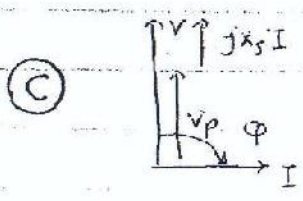 V jxsI
C
Vp φ
I